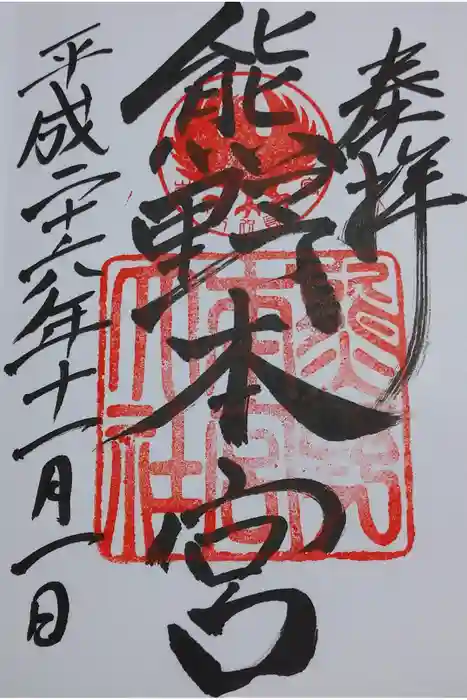 奉拝
熊野本宮
平成二十六年十一月一日